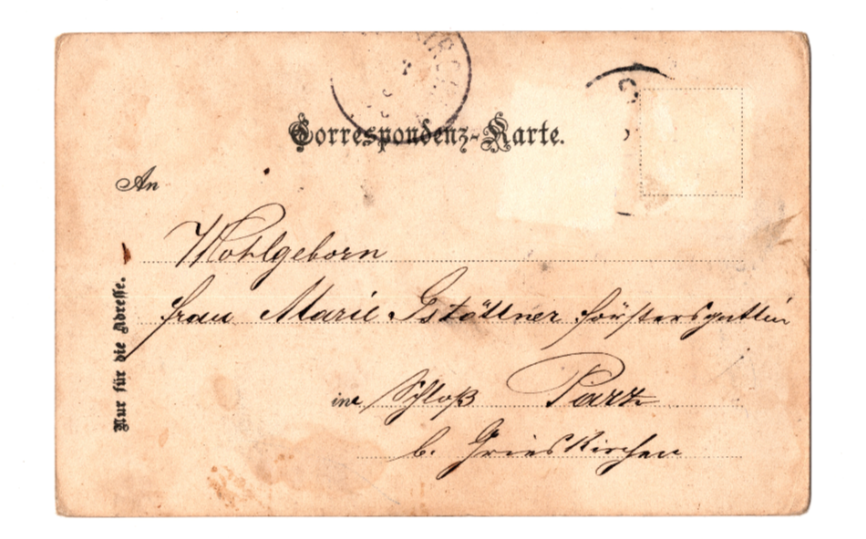 Correspondenz-Karte.
An
Wohlgeborn
Frau Marie Gstöttner Förstersgattin
in Schloß Parz
b. Grieskirchen
Nur für die Adresse.